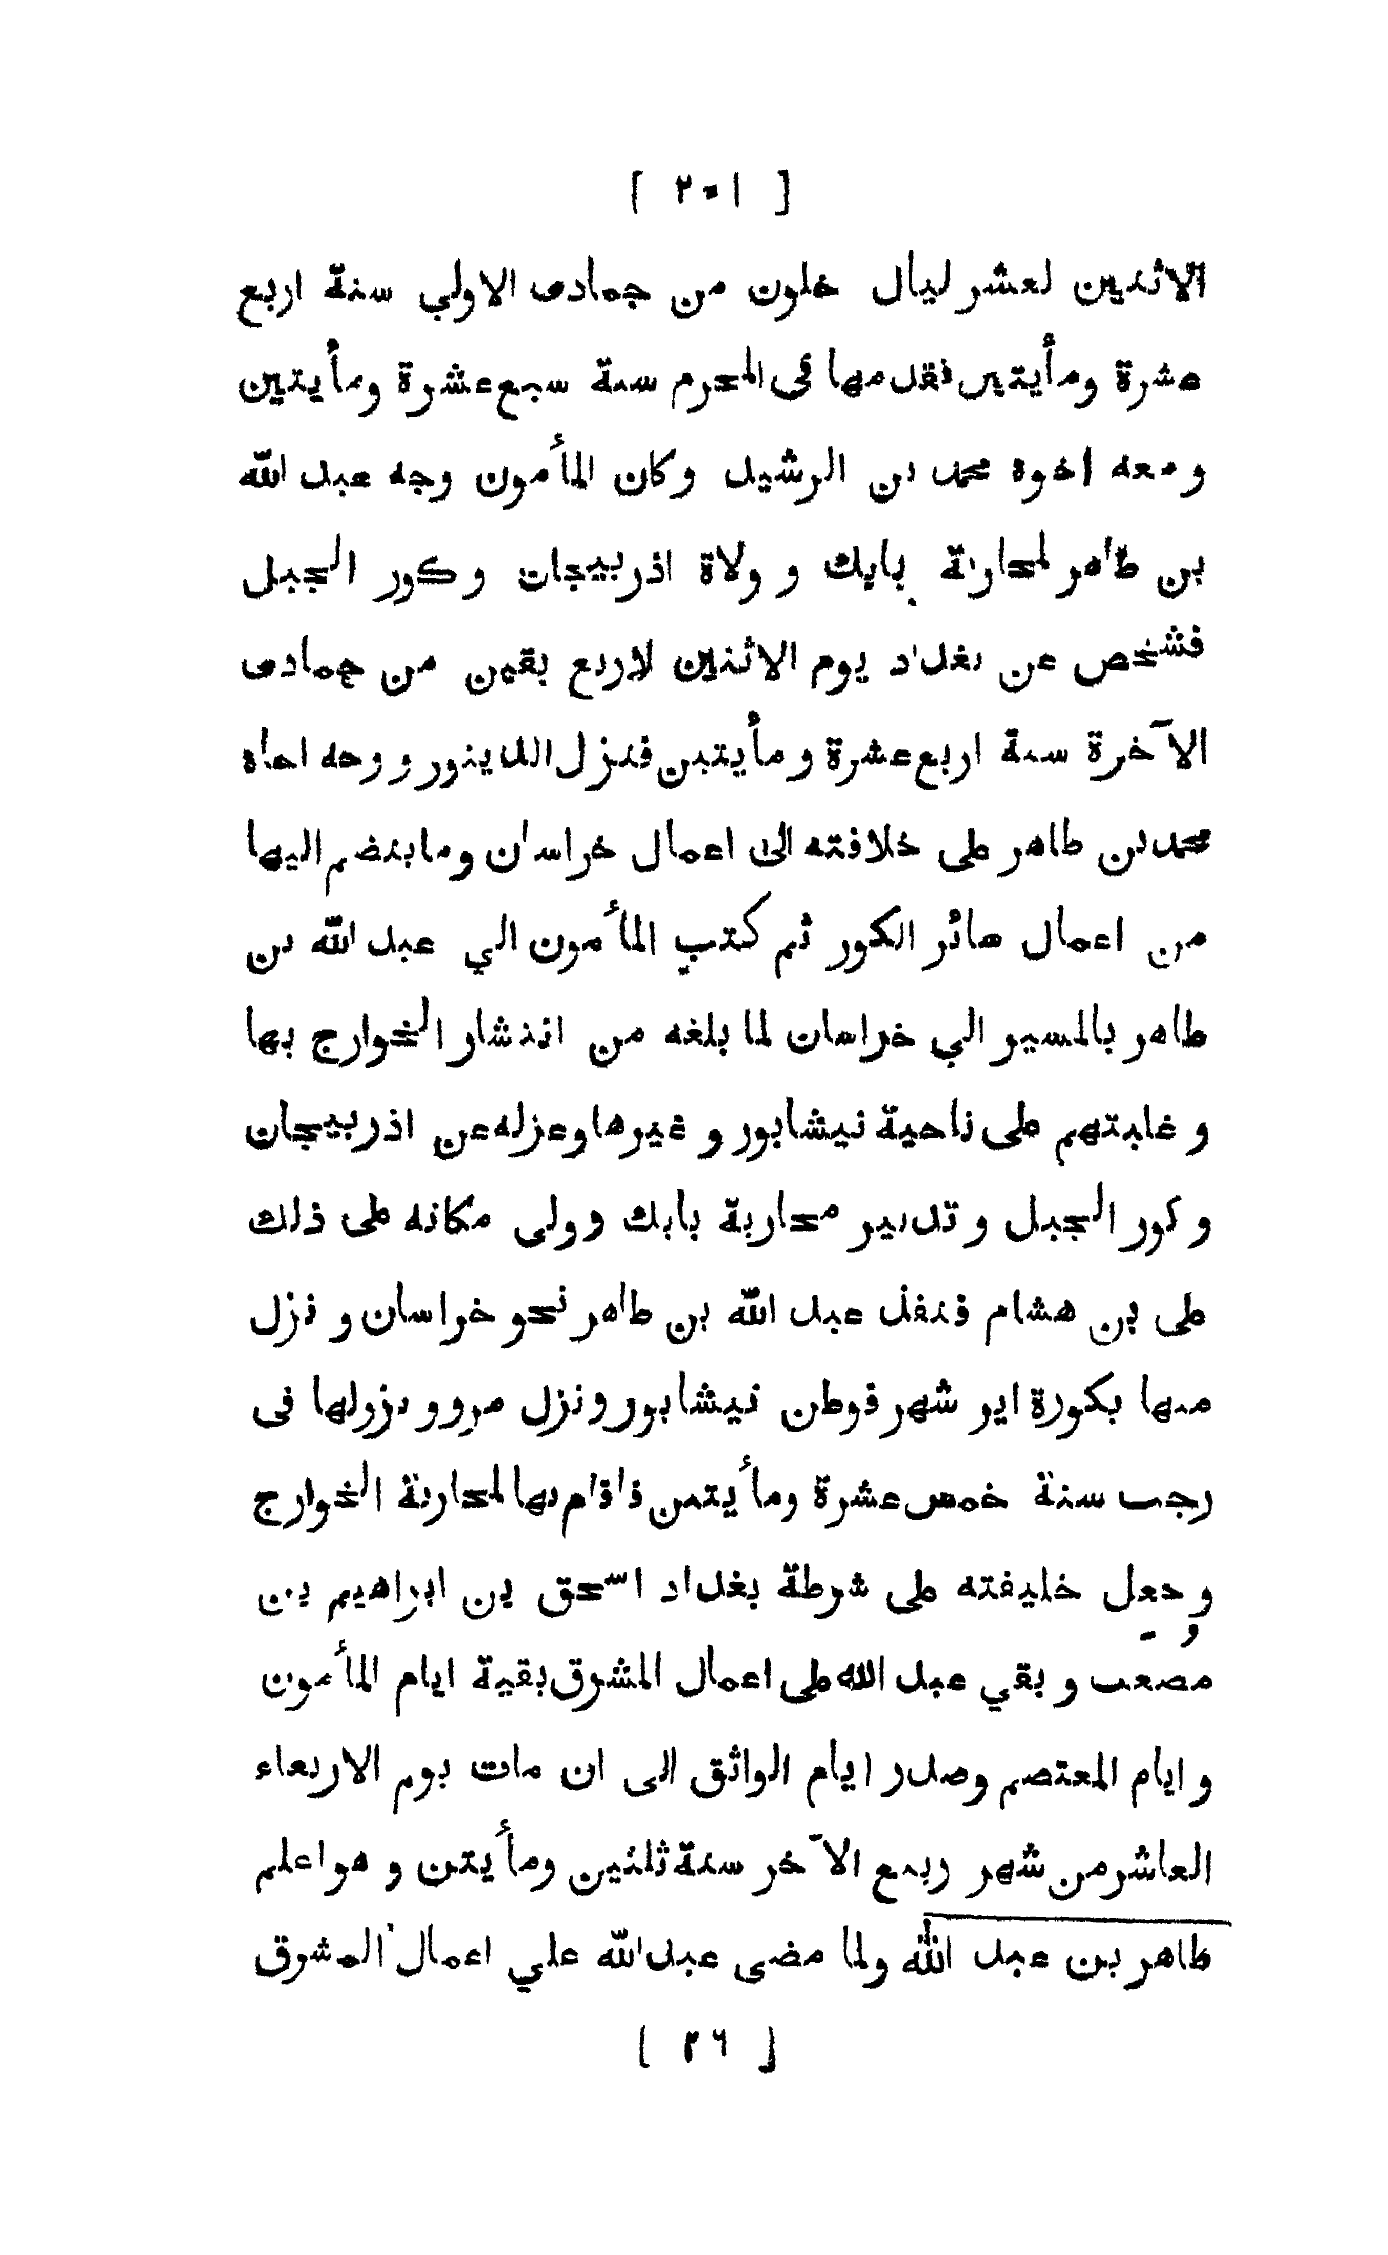 [ ٢٠١ ]
الاثنين لعشر ليال خلون من جمادى الاولي سنة اربع
عشرة ومأيتين فقدمها في المحرم سنة سبع عشرة ومأيتين
ومعه اخوة محمد بن الرشيد وكان المأمون وجه عبد الله
بن طاهر لمحاربة بابك و ولاة اذربيجان وكور الجبل
فشخص عن بغداد يوم الاثنين لاربع بقين من جمادى
الآخرة سنة اربع عشرة ومأيتين فنزل الدينور ووجه اخاه
محمد بن طاهر على خلافته الى اعمال خراسان وما ينضم اليها
من اعمال سائر الكور ثم كتب المأمون الي عبد الله بن
طاهر بالمسير الي خراسان لما بلغه من انتشار الخوارج بها
و غلبتهم على ناحية نيشابور و غيرها وعزله عن اذربيجان
و كور الجبل و تدبير محاربة بابك وولى مكانه على ذلك
على بن هشام فنفذ عبد الله بن طاهر نحو خراسان و نزل
منها بكورة ايرشهر فوطن نيشابور ونزل مرو و نزولها فى
رجب سنة خمس عشرة ومأيتين فاقام بها لمحاربة الخوارج
وجعل خليفته على شرطة بغداد اسحق بن ابراهيم بن
مصعب و بقي عبد الله على اعمال المشرق بقية ايام المأمون
و ايام المعتصم وصدر ايام الواثق الى ان مات يوم الاربعاء
العاشر من شهر ربيع الآخر سنة ثلثين ومأيتن و هو اعلم
طاهر بن عبد الله ولما مضى عبد الله علي اعمال المشرق
[ ٢٦ ]